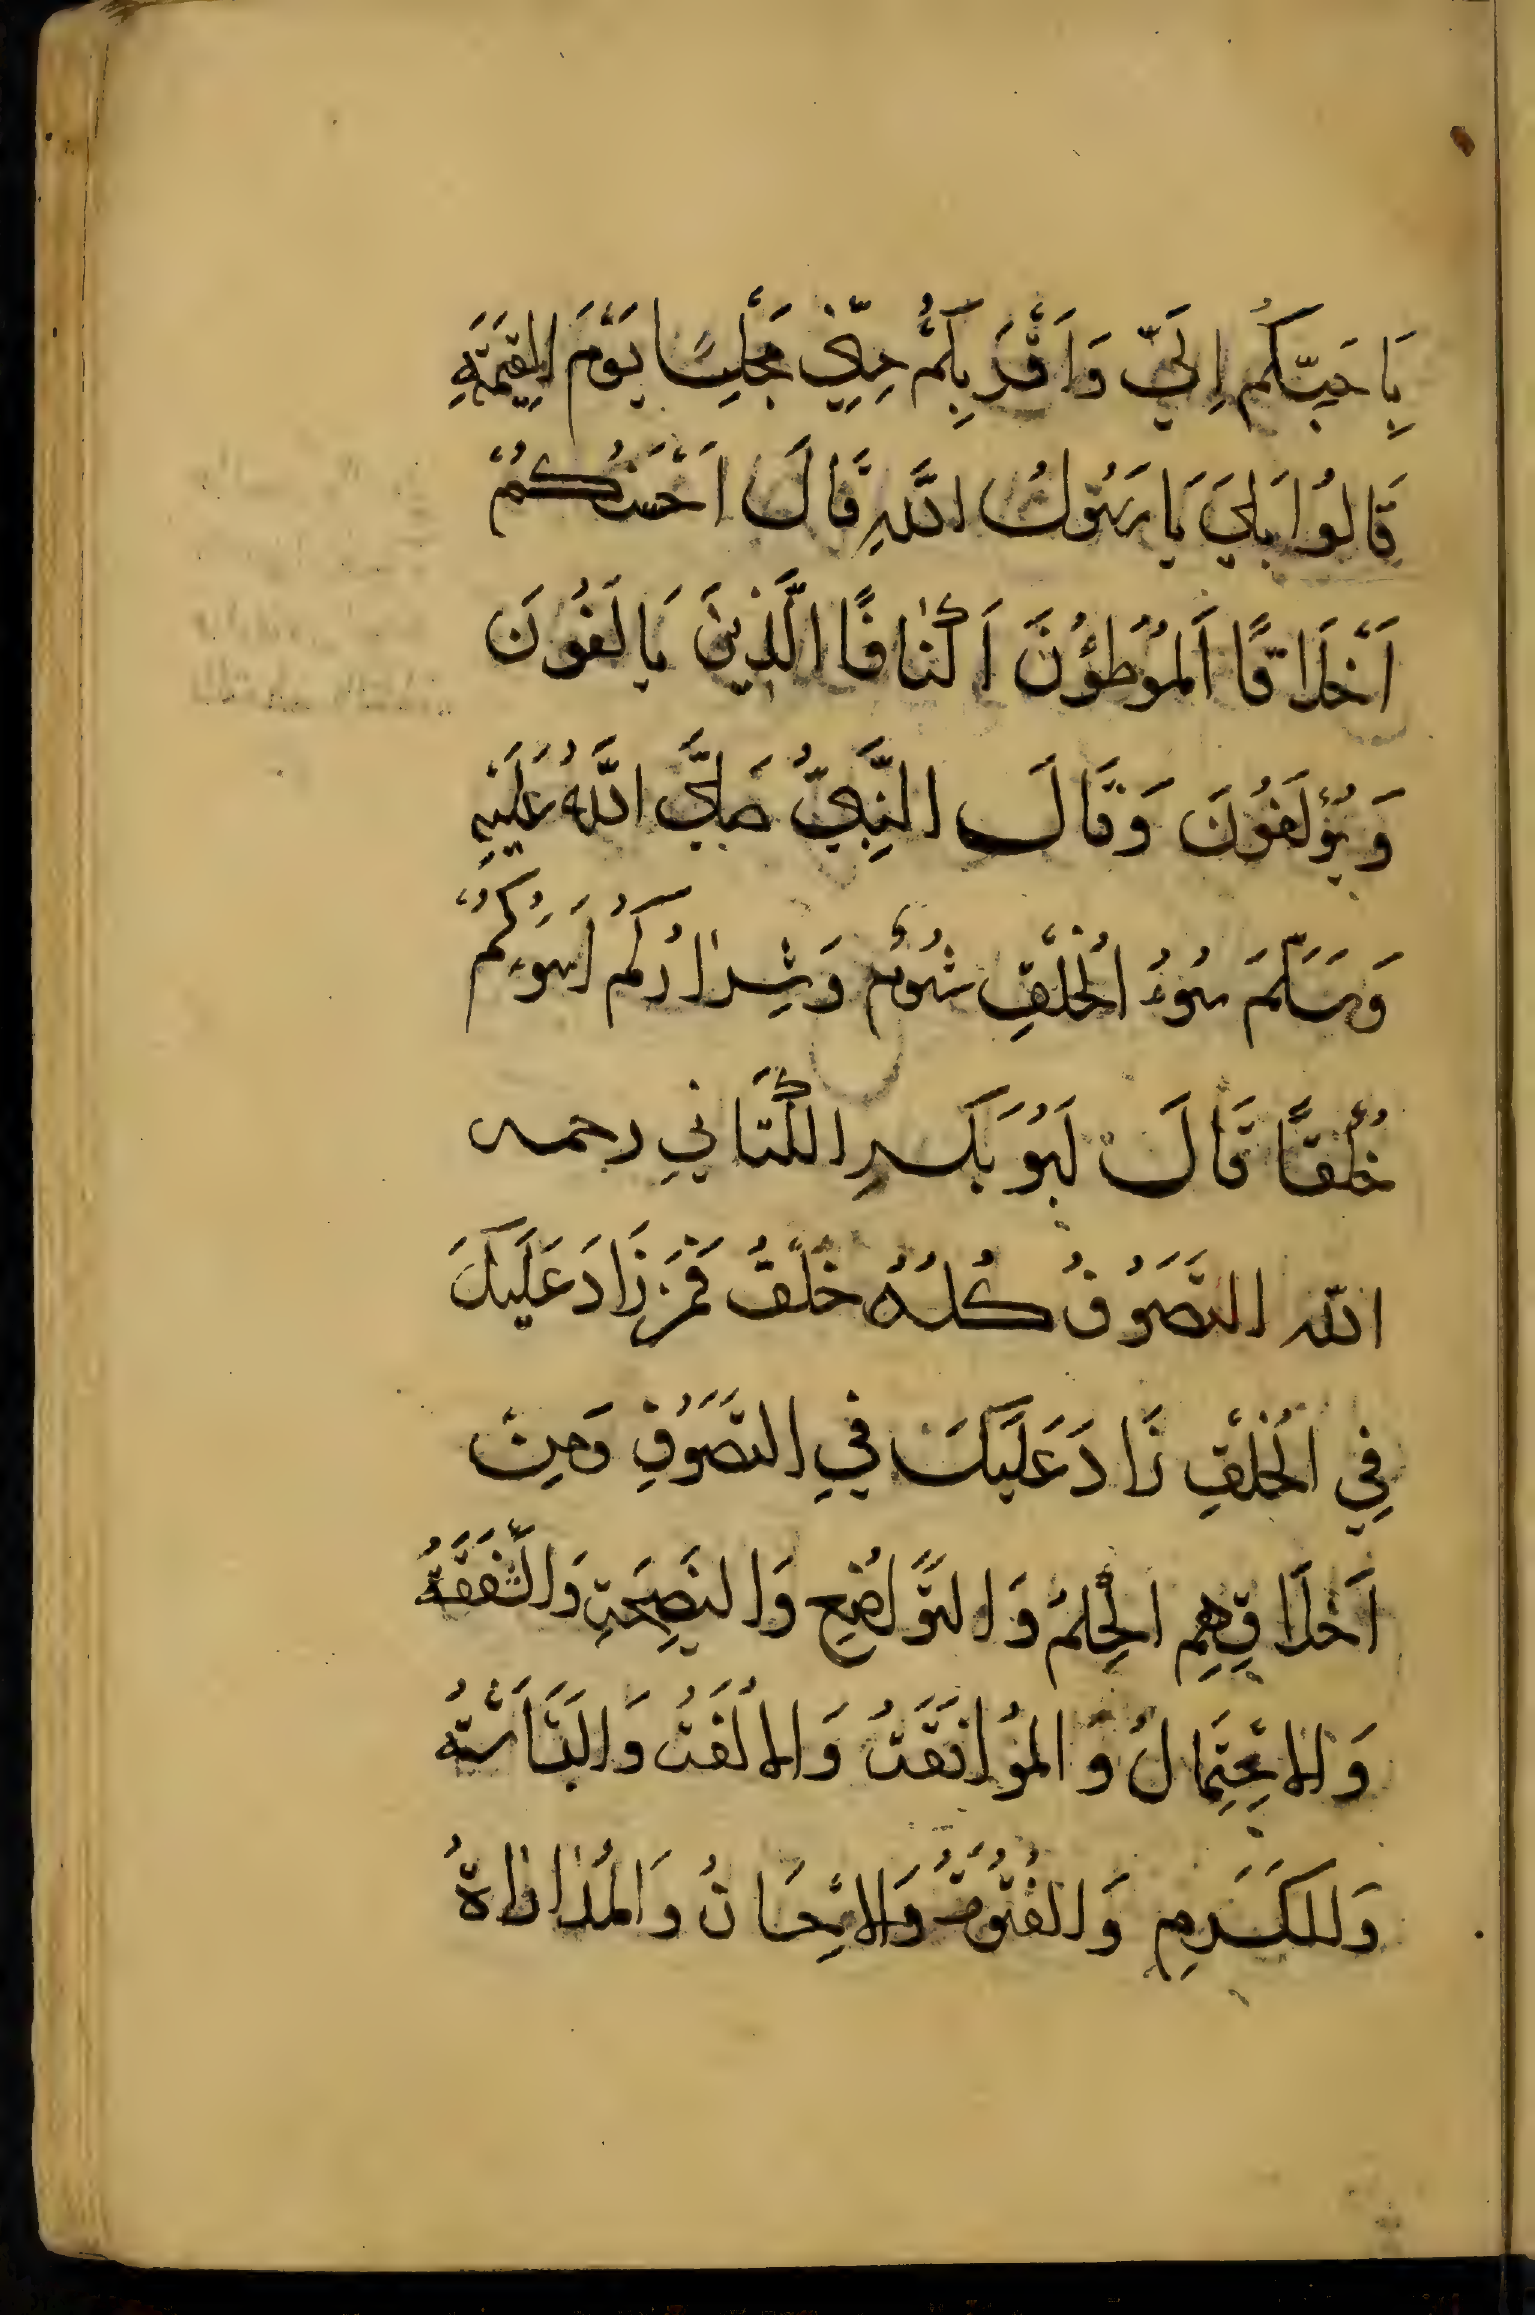 بِاَحَبِّكُم اِلَيَّ وَاَقْرَبِكُمْ مِنِّي مَجْلِسًا يَوْمَ القِيٰمَةِ
قَالُوا بَلَي يَا رَسُولَ اللَّهِ قَالَ اَحْسَنُكُمْ
اَخْلَاقًا اَلْمُوَطَّؤُنَ اَكْنَافًا الَّذِينَ يَالَفُونَ
وَيُؤلَفُونَ وَقَالَ النَّبِيُّ صَلَّي اللَّهُ عَلَيْهِ
وَسَلَّمَ سُوءُ الْخُلْقِ شُؤْم وَشِرَارُكُمْ اَسْوَءُكُمْ
خُلْقًا قَالَ اَبُو بَكرِ الكَتَّانِي رحمه
الله التَّصَوُفُ كُلُّهُ خُلْقٌ فَمَن زَادَ عَلَيكَ
فِي الْخُلْقِ زَادَ عَلَيْكَ فِي التَّصَوُفِ وَمِنْ
اَخْلَاقِهِم الْحِلمُ وَالتَّوَاضُعِ وَالنَصِيحَةِ وَالشَّفَقَةُ
وَالاِحْتِمَالُ وَالمُوَافَقَةُ وَالاُلْفَةُ وَالبَشَاشَةُ
وَالكَرَمِ وَالفُتُوَةُ وَالاِحْسَانُ وَالْمُدَارَاةُ